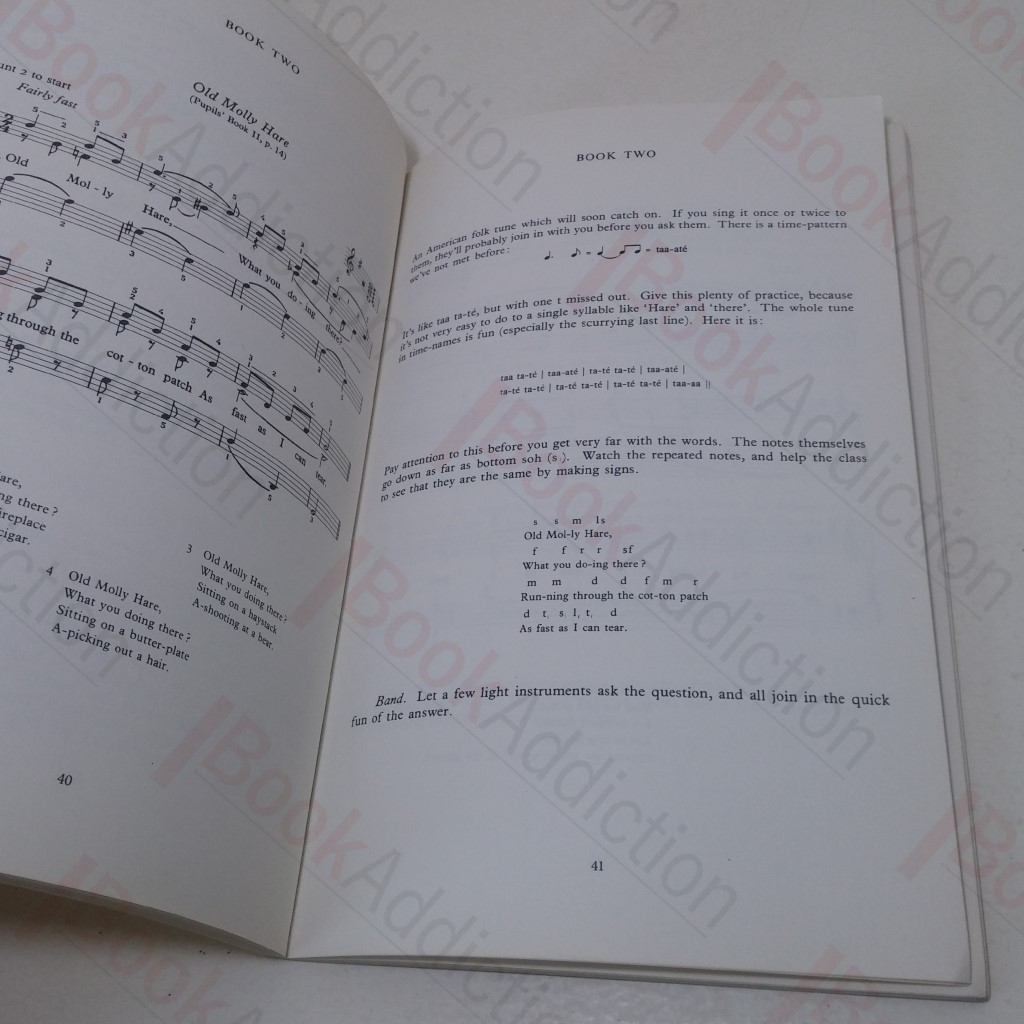 BOOK TWO
unt 2 to start
Fairly fast
Old Molly Hare
(Pupils' Book 11, p. 14)
Old Mol - ly Hare, What you do - ing there?
through the cot - ton patch As fast as I can tear.
are,
ng there?
ireplace
cigar.
3 Old Molly Hare,
What you doing there?
Sitting on a haystack
A-shooting at a bear.
4 Old Molly Hare,
What you doing there?
Sitting on a butter-plate
A-picking out a hair.
40
BOOK TWO
An American folk tune which will soon catch on. If you sing it once or twice to
them, they'll probably join in with you before you ask them. There is a time-pattern
we've not met before:
= taa-até
It's like taa ta-té, but with one t missed out. Give this plenty of practice, because
it's not very easy to do to a single syllable like 'Hare' and 'there'. The whole tune
in time-names is fun (especially the scurrying last line). Here it is:
taa ta-té | taa-até | ta-té ta-té | taa-até |
ta-té ta-té | ta-té ta-té | ta-té ta-té | taa-aa ||
Pay attention to this before you get very far with the words. The notes themselves
go down as far as bottom soh (s,). Watch the repeated notes, and help the class
to see that they are the same by making signs.
s s m ls
Old Mol-ly Hare,
f f r r sf
What you do-ing there?
m m d d f m r
Run-ning through the cot-ton patch
d t, s, l, t, d
As fast as I can tear.
Band. Let a few light instruments ask the question, and all join in the quick
fun of the answer.
41
BookAddiction